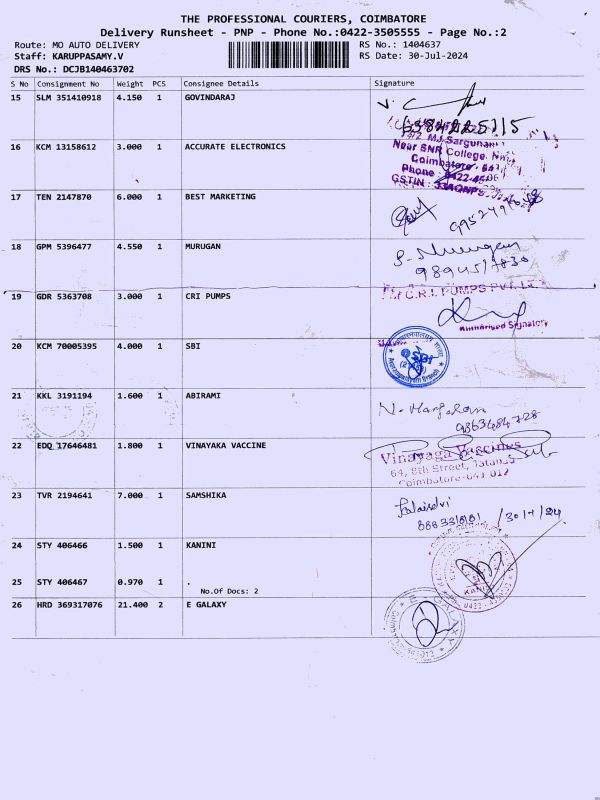 THE PROFESSIONAL COURIERS, COIMBATORE
Delivery Runsheet - PNP - Phone No.:0422-3505555 - Page No.:2
Route: MO AUTO DELIVERY
RS No.: 1404637
Staff: KARUPPASAMY.V
RS Date: 30-Jul-2024
DRS No.: DCJB140463702
S No Consignment No Weight PCS Consignee Details Signature
15 SLM 351410918 4.150 1 GOVINDARAJ
16 KCM 13158612 3.000 1 ACCURATE ELECTRONICS
M.J.Sarguna
Near SNR College,
Coimbatore
Phone
GSTIN
17 TEN 2147870 6.000 1 BEST MARKETING
18 GPM 5396477 4.550 1 MURUGAN
S. Murugan
19 GDR 5363708 3.000 1 CRI PUMPS
C.R.I. PUMPS PVT.
Authorised Signatory
20 KCM 70005395 4.000 1 SBI
SBI
21 KKL 3191194 1.600 1 ABIRAMI
9863484728
22 EDQ 17646481 1.800 1 VINAYAKA VACCINE
Vinayaga Vaccines
64, 8th Street, Tatabad
Coimbatore-641 012
23 TVR 2194641 7.000 1 SAMSHIKA
Kalaiselvi
30/7/24
24 STY 406466 1.500 1 KANINI
25 STY 406467 0.970 1 .
No.Of Docs: 2
26 HRD 369317076 21.400 2 E GALAXY